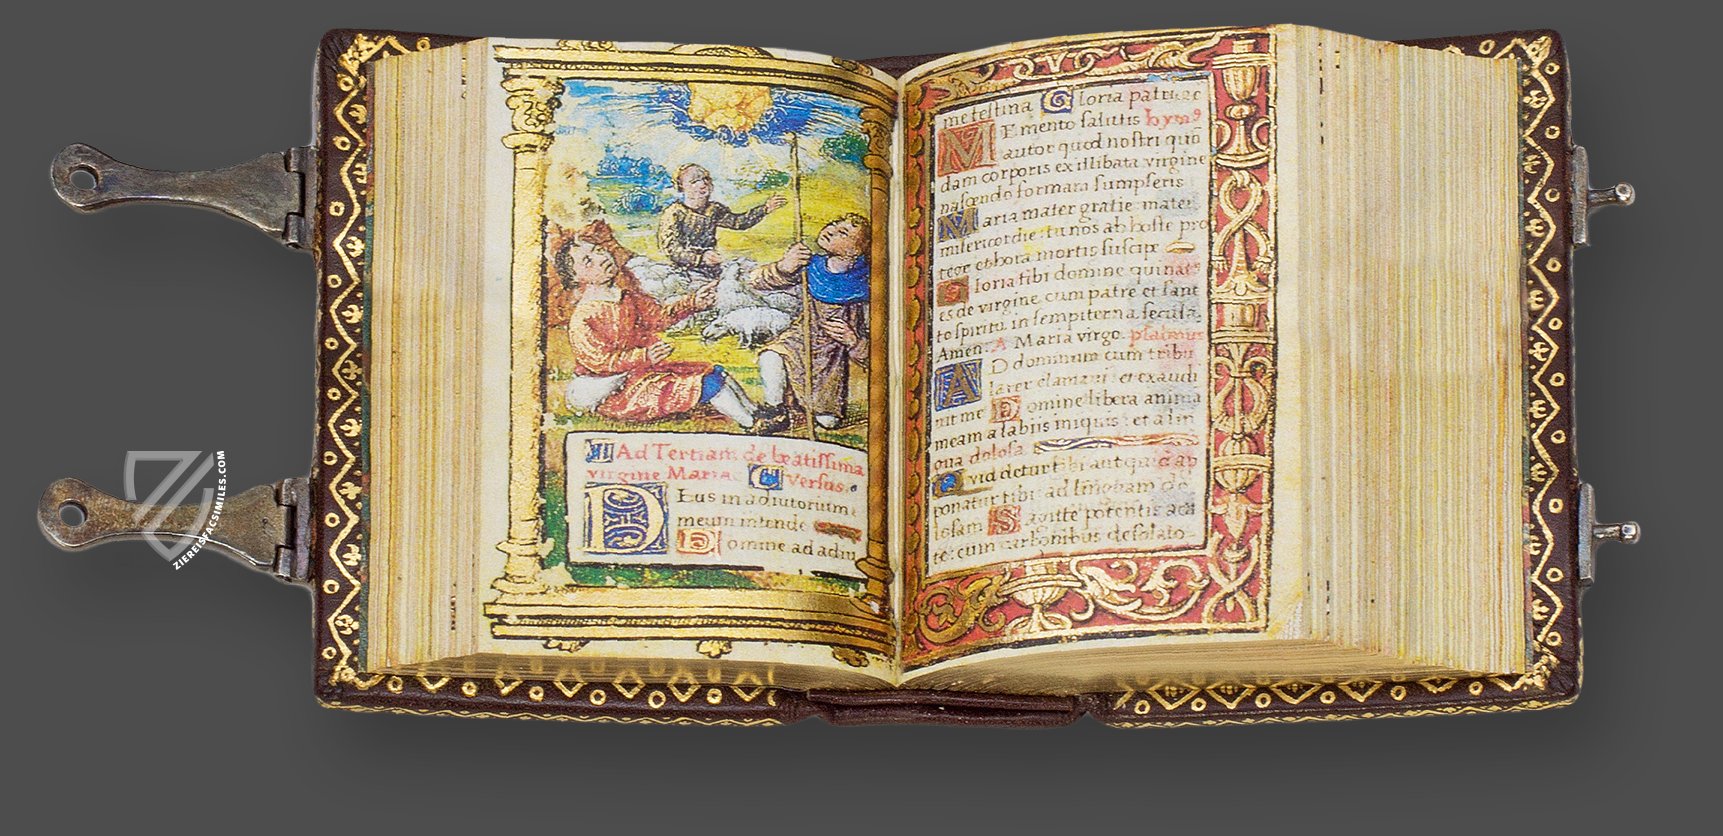 Ad Tertiam de beatissima
virgine Maria. Versus.
Deus in adiutorium
meum intende
Domine ad adiu
me festina Gloria patri
Memento salutis hymꝰ
autor quod nostri quō
dam corporis ex illibata virgine
nascendo formam sumpseris
Maria mater gratie mater
misericordie: tu nos ab hoste pro
tege et hora mortis suscipe
Gloria tibi domine qui natꝰ
es de virgine cum patre et sanc
to spiritu in sempiterna secula.
Amen. A Maria virgo. psalmus
AD dominum cum tribu
larer clamavi: et exaudi
vit me Domine libera anima
meam a labiis iniquis: et a lin
gua dolosa.
Quid detur tibi aut quid ap
ponatur tibi: ad linguam do
losam Sagitte potentis acu
te: cum carbonibus desolato
ZIEREISFACSIMILES.COM